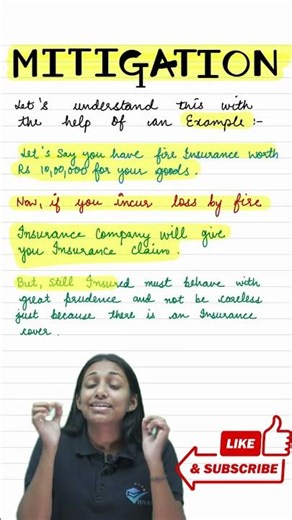 MITIGATION
Let's understand this with
the help Of an Example :-
Let's Say you have fire Insurance worth
Rs 10,00,000 for your goods.
Now, if you incur loss by fire
Insurance Company will give
you Insurance claim.
But, Still Insured must behave with
great prudence and not be careless
just because there is an Insurance
cover.
LIKE
& SUBSCRIBE